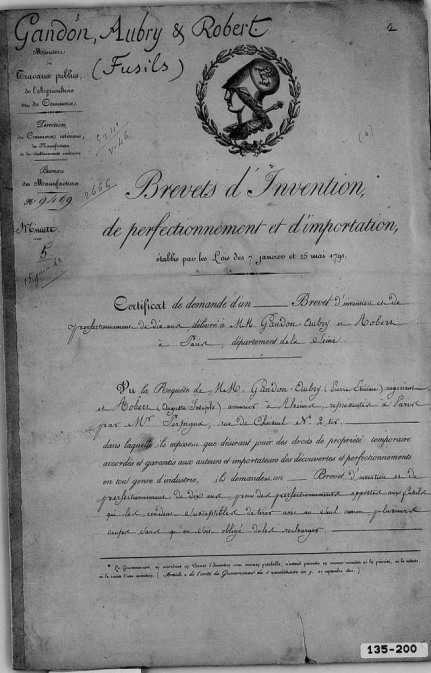 Gandon, Aubry & Robert
(Fusils)
2
Ministère
Travaux publics,
de l'Agriculture
du Commerce.
Direction
du Commerce intérieur,
des Manufactures
Bureau
des Manufactures
N° 9469
2666
Minute
5
Brevets d'Invention,
de perfectionnement et d'importation,
établis par les Lois des 7 janvier et 25 mai 1791.
Certificat de demande d'un Brevet d'invention et de
perfectionnement de dix ans délivré à MM. Gandon-Aubry et Robert
à Paris, département de la Seine.
Vu la Requête de MM. Gandon-Aubry (Pierre Etienne) négociant
et Robert (Auguste Joseph) armurier à Rheims, représentés à Paris
par Mr. Perpigna, rue de Choiseul N° 2 ter.
dans laquelle ils exposent que desirant jouir des droits de propriété temporaire
accordés et garantis aux auteurs et importateurs des découvertes et perfectionnements
en tout genre d'industrie, ils demandent un Brevet d'invention et de
perfectionnement de dix ans, pour des perfectionnements apportés aux fusils
qui les rendent susceptibles de tirer avec un seul canon plusieurs
coups sans qu'on soit obligé de les recharger.
* Le Gouvernement, en accordant un Brevet d'Invention sans examen préalable, n'entend garantir en aucune manière ni la priorité, ni le mérite,
ni le succès d'une invention.
135-200